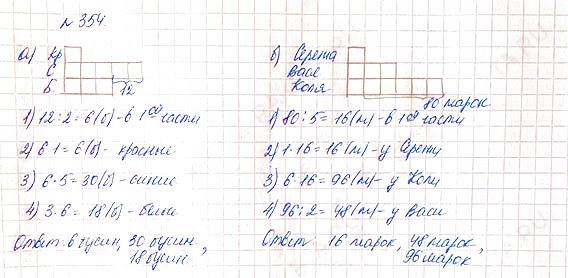 № 354
а) Кр
С
Б
12
1) 12 : 2 = 6 (б) - в 1 ой части
2) 6·1 = 6 (б) - красные
3) 6·5 = 30 (б) - синие
4) 3·6 = 18 (б) - белые
Ответ: 6 бусин, 30 бусин,
18 бусин
б) Сережа
Вася
Коля
80 марок
1) 80 : 5 = 16 (м) - в 1 ой части
2) 1·16 = 16 (м) - у Сережи
3) 6·16 = 96 (м) - у Коли
4) 96 : 2 = 48 (м) - у Васи
Ответ: 16 марок, 48 марок,
96 марок